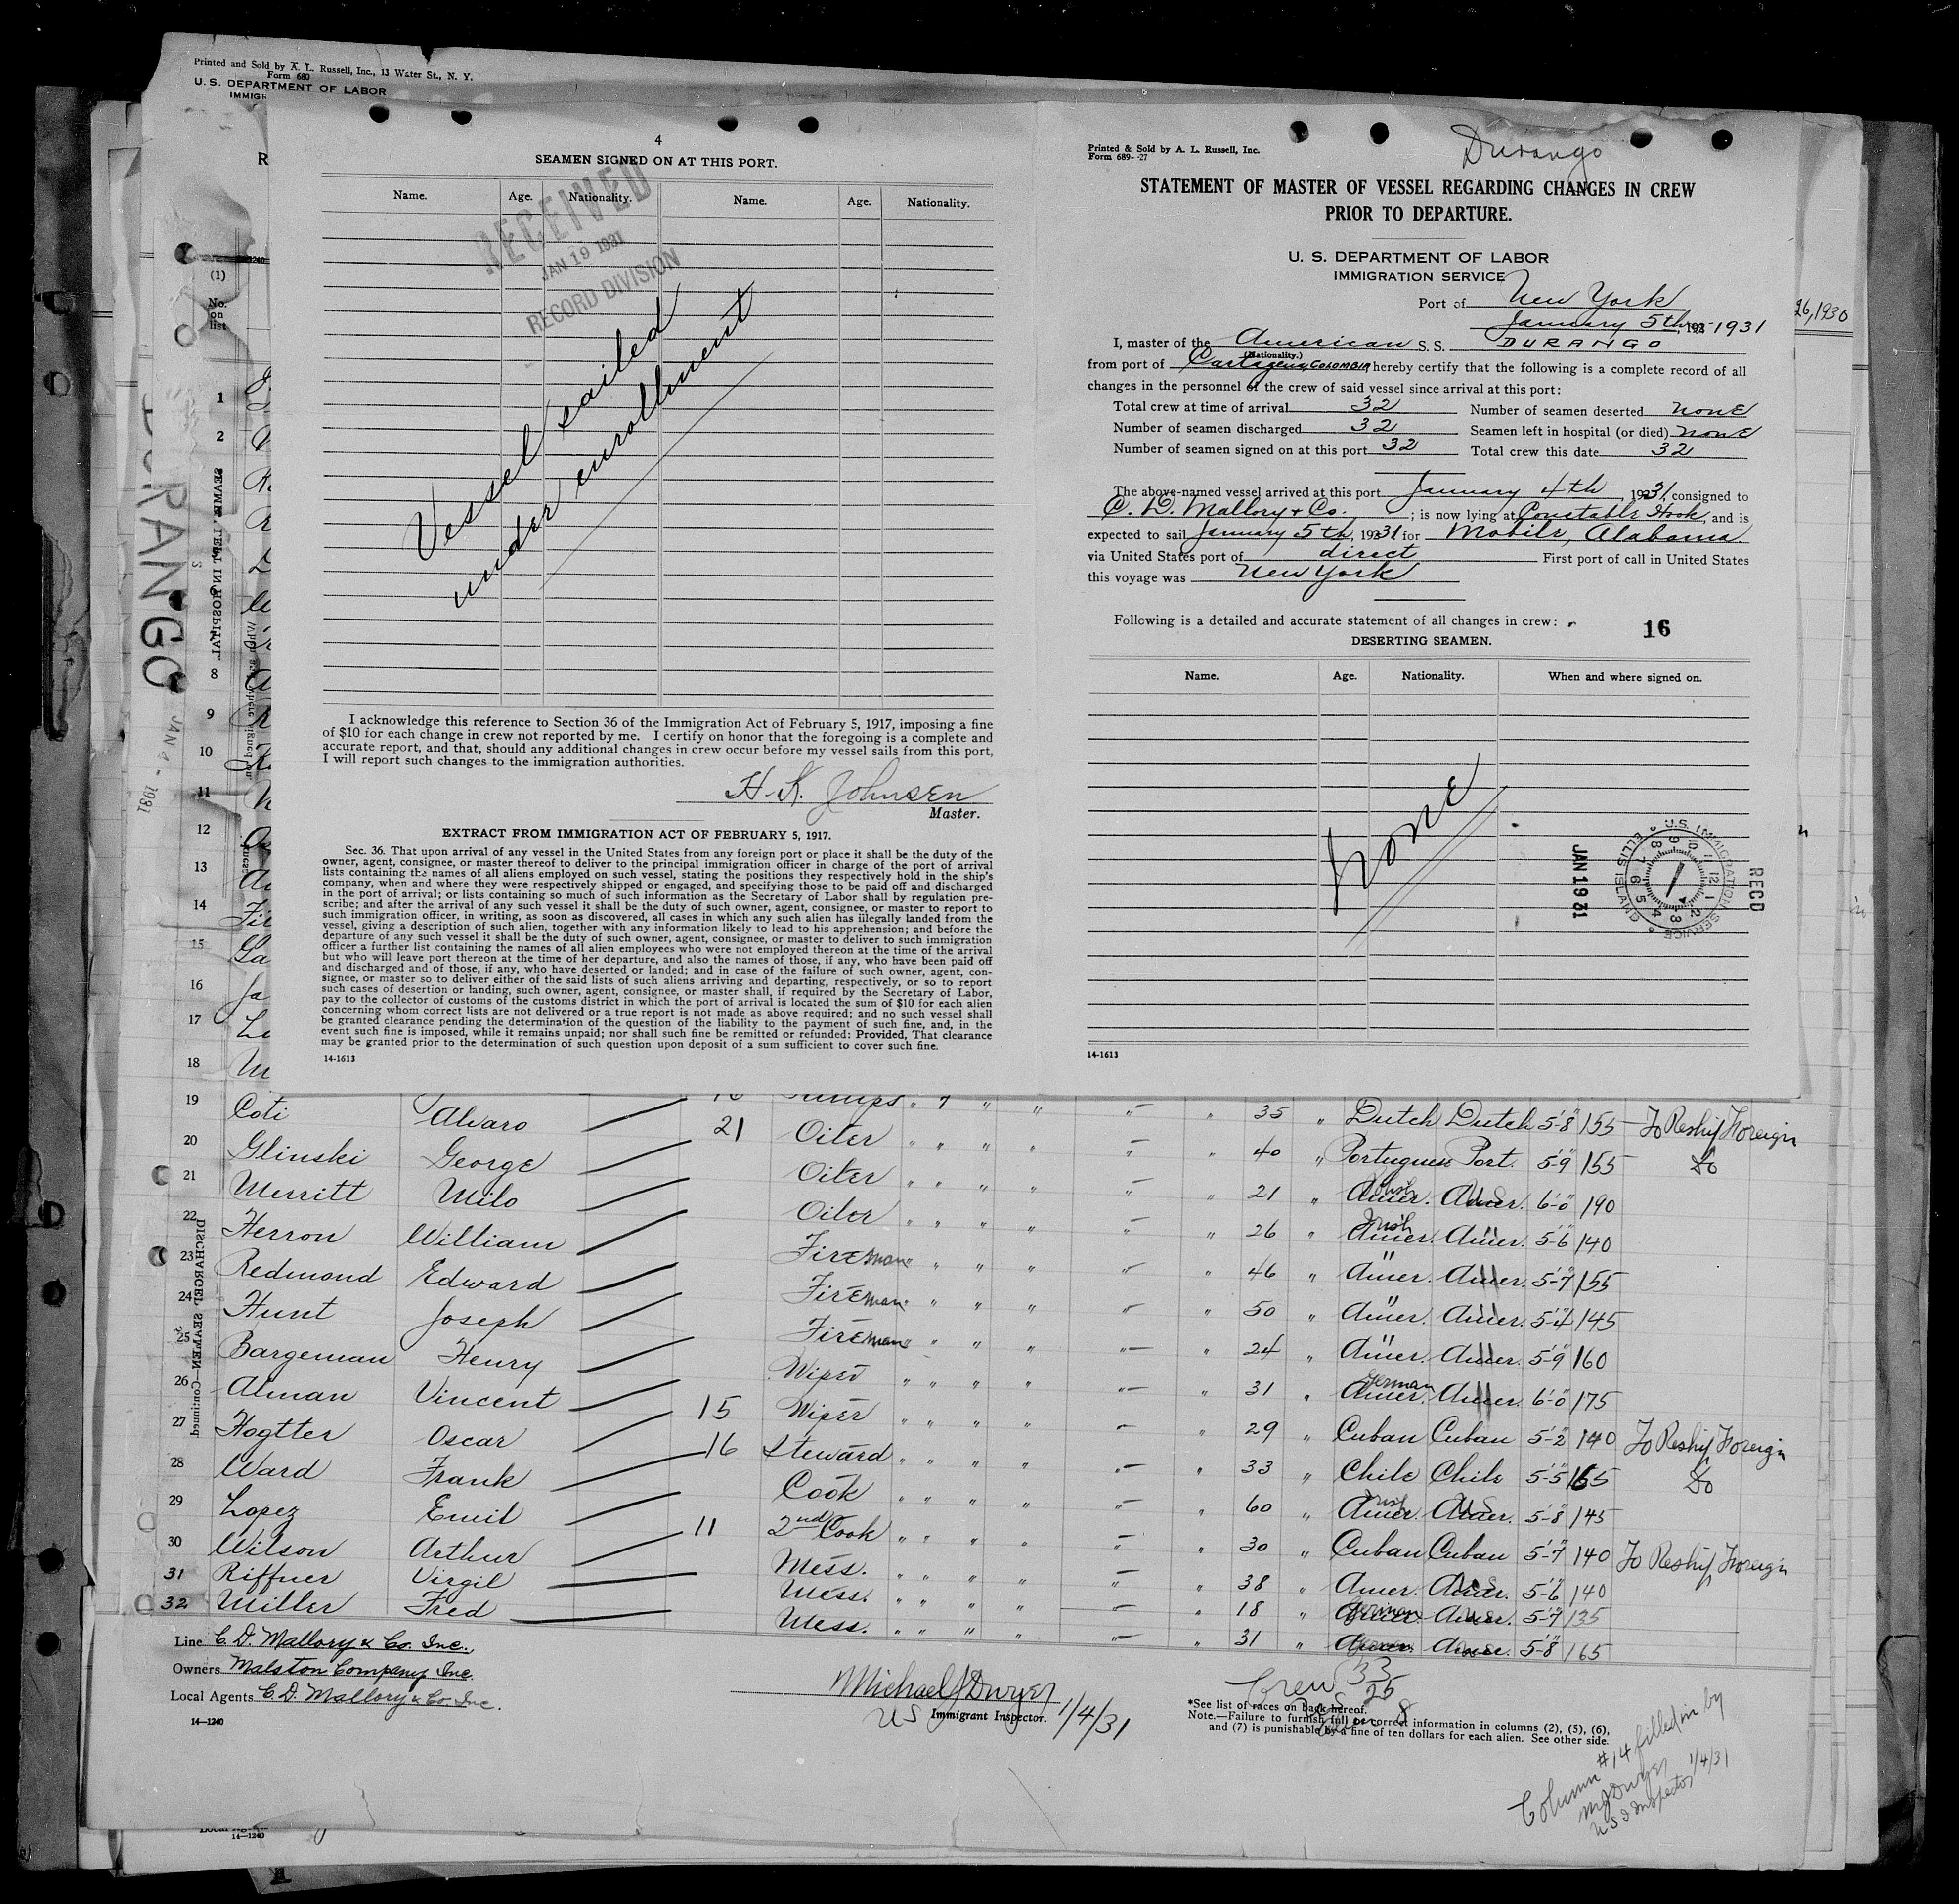 Printed and Sold by A. L. Russell, Inc., 13 Water St., N. Y.
Form 680
U. S. DEPARTMENT OF LABOR
4
SEAMEN SIGNED ON AT THIS PORT.
Name. Age. Nationality. Name. Age. Nationality.
RECEIVED
JAN 19 1931
RECORD DIVISION
Vessel sailed
under enrollment
I acknowledge this reference to Section 36 of the Immigration Act of February 5, 1917, imposing a fine
of $10 for each change in crew not reported by me. I certify on honor that the foregoing is a complete and
accurate report, and that, should any additional changes in crew occur before my vessel sails from this port,
I will report such changes to the immigration authorities.
H. K. Johnsen
Master.
EXTRACT FROM IMMIGRATION ACT OF FEBRUARY 5, 1917.
Sec. 36. That upon arrival of any vessel in the United States from any foreign port or place it shall be the duty of the
owner, agent, consignee, or master thereof to deliver to the principal immigration officer in charge of the port of arrival
lists containing the names of all aliens employed on such vessel, stating the positions they respectively hold in the ship's
company, when and where they were respectively shipped or engaged, and specifying those to be paid off and discharged
in the port of arrival; or lists containing so much of such information as the Secretary of Labor shall by regulation pre-
scribe; and after the arrival of any such vessel it shall be the duty of such owner, agent, consignee, or master to report to
such immigration officer, in writing, as soon as discovered, all cases in which any such alien has illegally landed from the
vessel, giving a description of such alien, together with any information likely to lead to his apprehension; and before the
departure of any such vessel it shall be the duty of such owner, agent, consignee, or master to deliver to such immigration
officer a further list containing the names of all alien employees who were not employed thereon at the time of the arrival
but who will leave port thereon at the time of her departure, and also the names of those, if any, who have been paid off
and discharged and of those, if any, who have deserted or landed; and in case of the failure of such owner, agent, con-
signee, or master so to deliver either of the said lists of such aliens arriving and departing, respectively, or so to report
such cases of desertion or landing, such owner, agent, consignee, or master shall, if required by the Secretary of Labor,
pay to the collector of customs of the customs district in which the port of arrival is located the sum of $10 for each alien
concerning whom correct lists are not delivered or a true report is not made as above required; and no such vessel shall
be granted clearance pending the determination of the question of the liability to the payment of such fine, and, in the
event such fine is imposed, while it remains unpaid; nor shall such fine be remitted or refunded: Provided, That clearance
may be granted prior to the determination of such question upon deposit of a sum sufficient to cover such fine.
14-1613
Durango
Printed & Sold by A. L. Russell, Inc.
Form 689--27
STATEMENT OF MASTER OF VESSEL REGARDING CHANGES IN CREW
PRIOR TO DEPARTURE.
U. S. DEPARTMENT OF LABOR
IMMIGRATION SERVICE
Port of New York
January 5th, 1931
26, 1930
I, master of the American S. S. DURANGO
(Nationality.)
from port of Cartagena, COLOMBIA hereby certify that the following is a complete record of all
changes in the personnel of the crew of said vessel since arrival at this port:
Total crew at time of arrival 32 Number of seamen deserted none
Number of seamen discharged 32 Seamen left in hospital (or died) none
Number of seamen signed on at this port 32 Total crew this date 32
The above-named vessel arrived at this port January 4th, 1931, consigned to
C. D. Mallory & Co.; is now lying at Constable Hook, and is
expected to sail January 5th, 1931 for Mobile, Alabama.
via United States port of direct First port of call in United States
this voyage was New York
Following is a detailed and accurate statement of all changes in crew:
16
DESERTING SEAMEN.
Name. Age. Nationality. When and where signed on.
None
RECD
U.S. IMMIGRATION SERVICE
ELLIS ISLAND
JAN 19 31
14-1613
(1)
No. on list
DURANGO
JAN 4 - 1931
SEAMEN LEFT IN HOSPITAL
DISCHARGED SEAMEN—Continued
1
2
8
9
10
11
12
13
14
15
16
17
18
19 Coti Alvaro 35 Dutch Dutch 5'-8" 155 To Reship Foreign
20 Glinski George 21 Oiler 40 Portuguese Port. 5'-9" 155 do
21 Merritt Milo Oiler 21 Amer. Amer. 6'-0" 190
22 Herron William Oiler 26 Irish Amer. Amer. 5'-6" 140
23 Redmond Edward Fireman 46 Amer. Amer. 5'-7" 155
24 Hunt Joseph Fireman 50 Amer. Amer. 5'-4" 145
25 Bargeman Henry Fireman 24 Amer. Amer. 5'-9" 160
26 Alman Vincent Wiper 31 German Amer. Amer. 6'-0" 175
27 Hogtter Oscar 15 Wiper 29 Cuban Cuban 5'-2" 140 To Reship Foreign
28 Ward Frank 16 Steward 33 Chile Chile 5'-5" 165 do
29 Lopez Emil Cook 60 Irish Amer. Amer. 5'-8" 145
30 Wilson Arthur 11 2nd Cook 30 Cuban Cuban 5'-7" 140 To Reship Foreign
31 Riffner Virgil Mess. 38 Amer. Amer. 5'-6" 140
32 Miller Fred Mess. 18 Amer. Amer. 5'-7" 135
Mess. 31 Amer. Amer. 5'-8" 165
Line C. D. Mallory & Co. Inc.
Owners Malston Company Inc.
Local Agents C. D. Mallory & Co. Inc.
14—1240
Michael J Dwyer
US Immigrant Inspector. 1/4/31
Crew 33
U S 25
Alien 8
*See list of races on back hereof.
Note.—Failure to furnish full or correct information in columns (2), (5), (6),
and (7) is punishable by a fine of ten dollars for each alien. See other side.
Column #14 filled in by
MJ Dwyer
U S I Inspector 1/4/31
14—1240